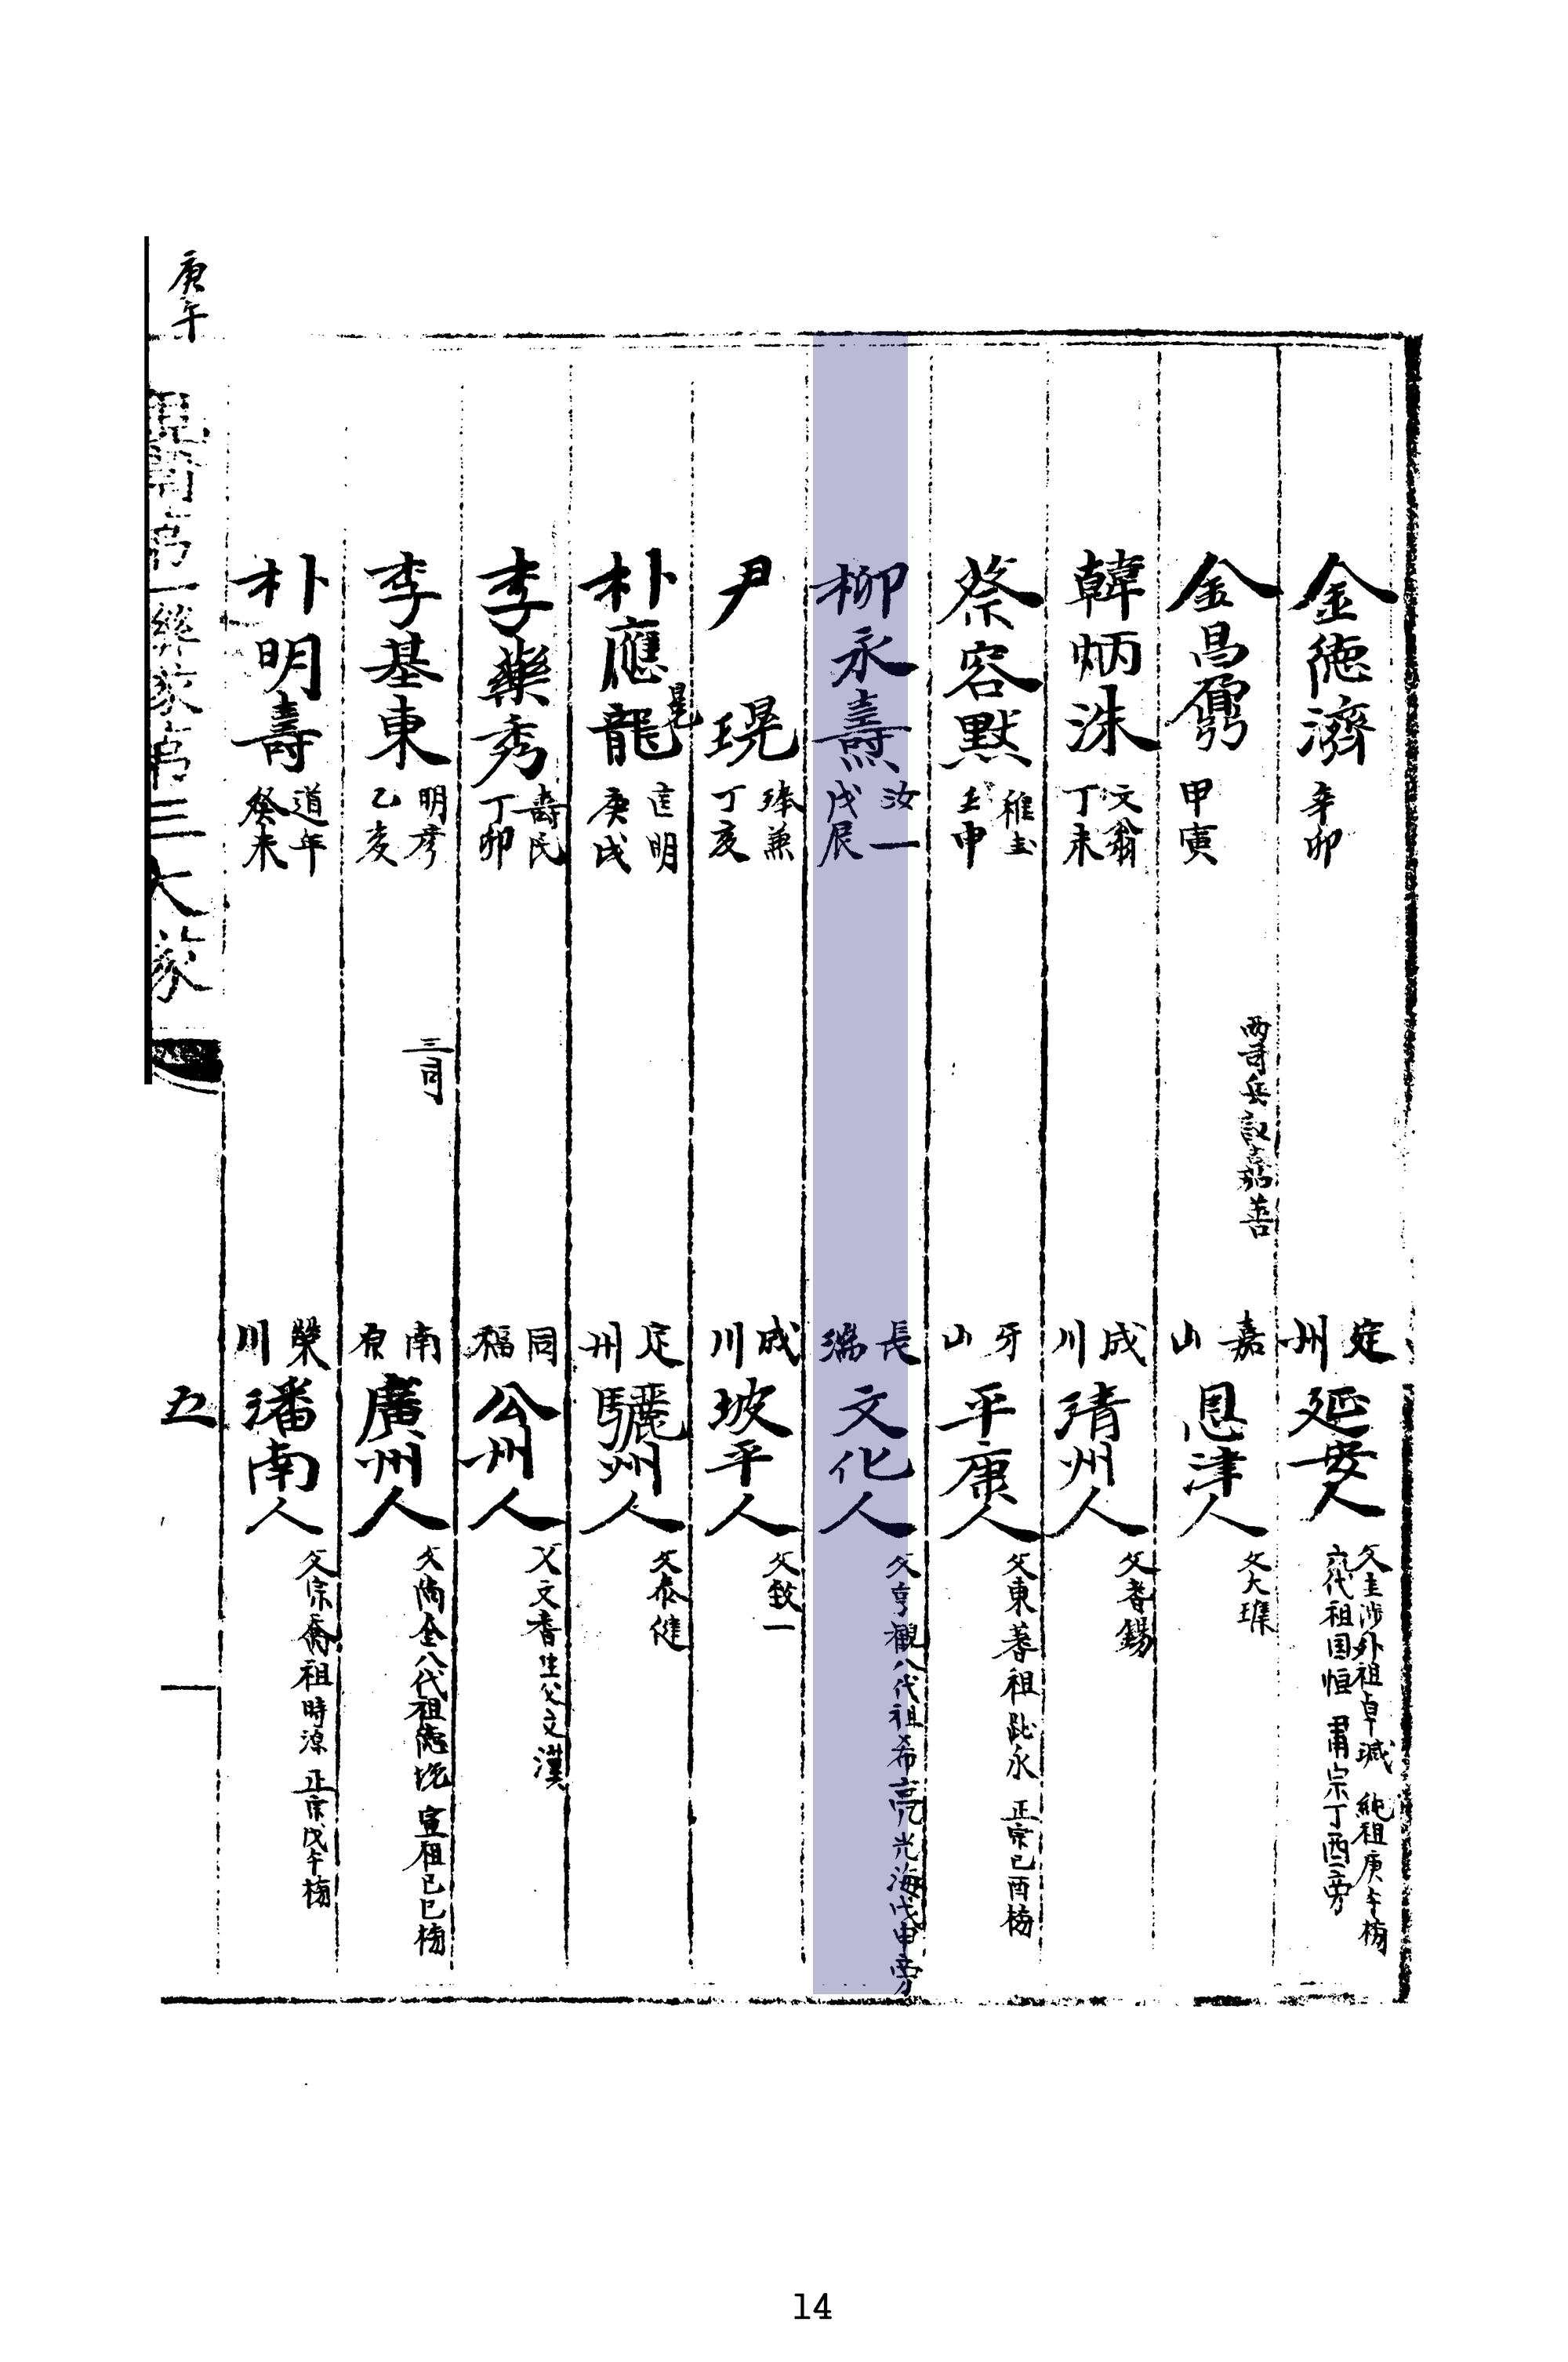 金德濟 辛卯 定州 延安人 父圭涉外祖卓瑊 純祖庚午榜 六代祖国恒 肅宗丁酉榜
金昌 甲寅 兩司兵議嘉善 嘉山 恩津人 父大璡
韓炳洙 文翁 丁未 成川 清州人 父耆錫
蔡容默 稚圭 壬申 牙山 平康人 父東著祖趾永 正宗己酉榜
柳永燾 汝一 戊辰 長湍 文化人 父亨觀八代祖希亮光海戊申旁
尹 瑥 丁亥 成川 坡平人 父致一
朴應龍 晃 匡明 庚戌 定州 驪州人 父泰健
李樂秀 壽民 丁卯 同福 公州人 父文耆生父文漢
李基東 明彦 乙亥 三司 南原 廣州人 父尚全八代祖德悅 宣祖己巳榜
朴明壽 道年 癸未 榮川 潘南人 父宗喬祖時源 正宗戊午榜
庚午
五
14